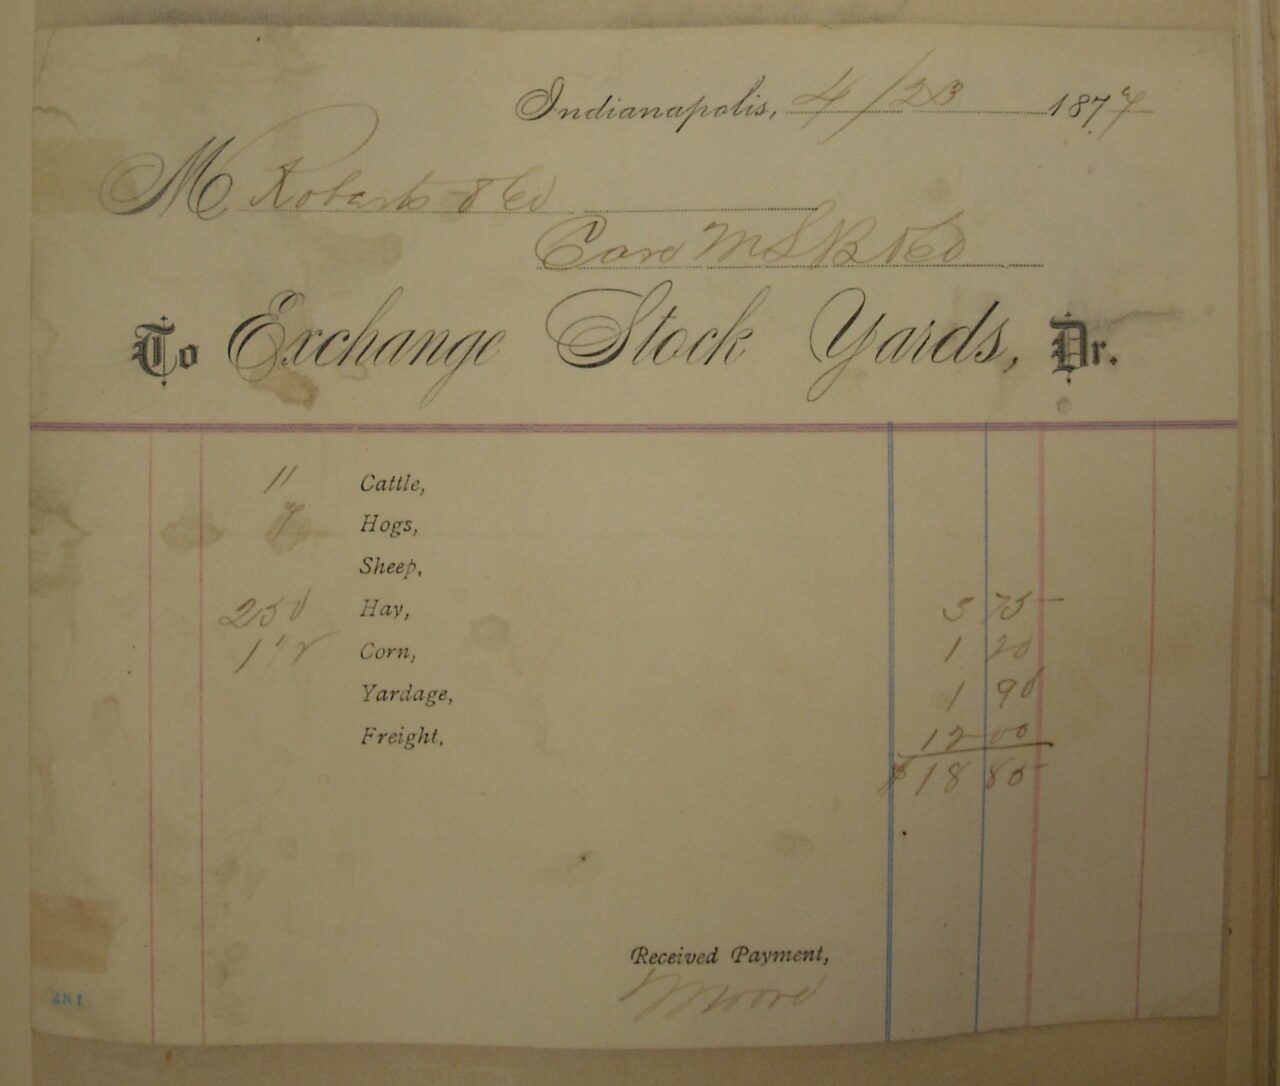 Indianapolis, 4/23 1877
M Roberts & Co
Care M S R & Co
To Exchange Stock Yards, Dr.
11 Cattle,
7 Hogs,
Sheep,
250 Hay, 3 75
1 1/2 Corn, 1 20
Yardage, 1 90
Freight, 12 00
$18 85
Received Payment,
Moore
281